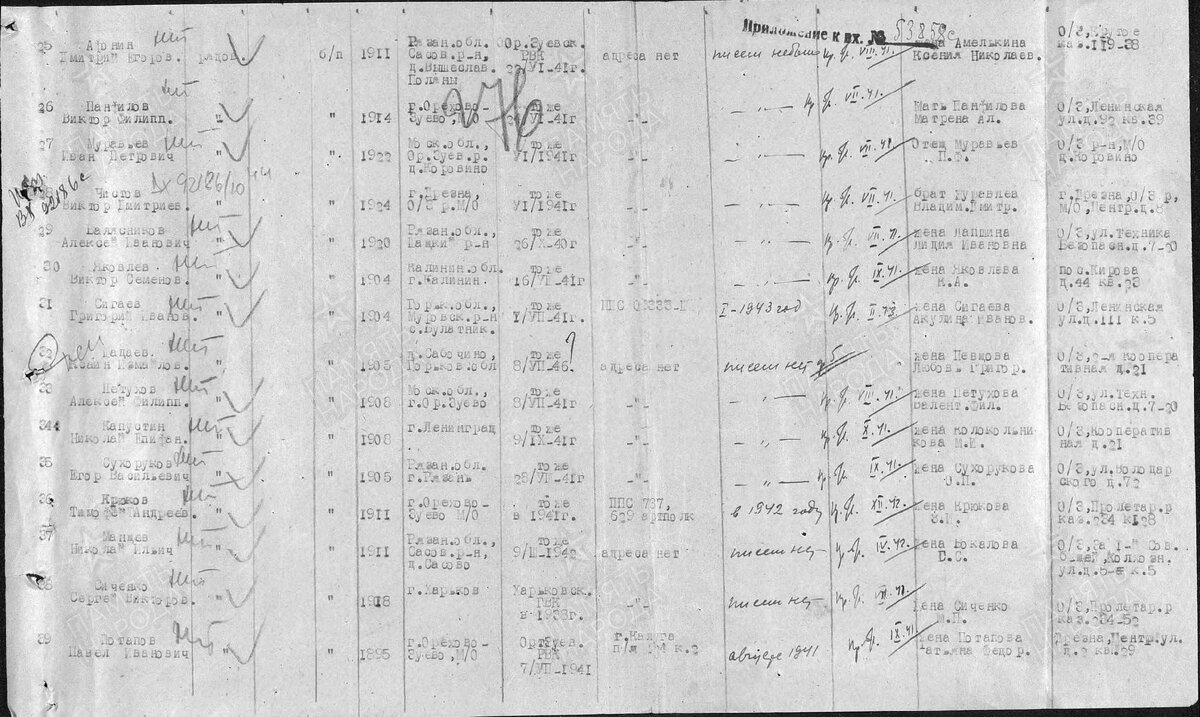 Приложение к вх. № 53858с
25 Аронин Нет
Дмитрий Егоров. рядов. б/п 1911 Рязан.обл. Сасов.р-н, д.Вышеслав. Поляны Ор.Зуевск. РВК 22/VI-41г. адреса нет писем небыло Амелькина Ксения Николаев. О/З, каз.119-38
276
Нет
26 Панфилов
Виктор Филипп. " " 1914 г.Орехово-Зуево, М/О то же VI-41г -"- — " — VII.41. Мать Панфилова Матрена Ал. О/З, Ленинская ул.д.92 кв.39
27 Муравьев Нет
Иван Петрович " " 1922 Моск.обл., Ор.Зуев.р. д.Коровино то же VI/1941г -"- — " — Отец Муравьев П.Ф. О/З р-н, М/О д.Коровино
Вх 92186с
Чистов 92186/10
Виктор Дмитриев. " " 1924 г.Дрезна, О/З р.М/О то же VI/1941г -"- — " — VII.41. брат Муравлев Владим.Дмитр. г.Дрезна, О/З р, М/О, Центр.д.8
29 Балясников Нет
Алексей Иванович " " 1920 Рязан.обл. р-н то же 26/X-40г -"- — " — VII.41. жена Лапшина Лидия Ивановна О/З, ул.Техника Безопасн.д.7-20
30 Яковлев Нет
Виктор Семенов. " " 1904 Калинин.обл. г.Калинин. то же 16/VII-41г -"- — " — IX.41. жена Яковлева Н.А. пос.Кирова д.44 кв.23
31 Сигаев Нет
Григорий Иванов. " " 1904 Горьк.обл., Муромск.р-н с.Булатник. то же 7/VII-41г. ППС I-1943 год II.43. жена Сигаева Акулина Иванов. О/З, Ленинская ул.д.111 к.5
32 Нет
" " 1905 д.Сабочино, Горьков.обл то же 8/VII-46. ? адреса нет писем нет жена Певцова Любовь Григор. О/З, 2-я Коопера тивная д.21
33 Петухов Нет
Алексей Филипп. " " 1908 Моск.обл., г.Ор.Зуево то же 8/VII-41г -"- — " — VIII.41. жена Петухова Валент.Фил. О/З, ул.Техн. Безопасн.д.7-20
344 Капустин Нет
Николай Епифан. " " 1908 г.Ленинград то же 9/IX-41г -"- — " — X.41. жена Колокольни- кова М.И. О/З, Кооператив ная д.21
35 Сухоруков Нет
Егор Васильевич " " 1905 Рязан.обл. г.Рязань то же 28/VII-41г -"- — " — IX.41. жена Сухорукова О.П. О/З, ул.Володар ского д.72
36 Крюков Нет
Тимофей Андреев. " " 1911 г.Орехово-Зуево М/О то же в 1941г. ППС 737, 629 артполк в 1942 году XII.42. жена Крюкова З.И. О/З, Пролетар.р каз.234 к128
37 Манцев Нет
Николай Ильич " " 1911 Рязан.обл., Сасов.р-н, д.Сасово то же 9/II-1942 адреса нет писем нет IV.42. жена Бокалова Е.С. О/З, За I-й Сов. б-цей, Колхозн. ул.д.5-а к.5
38 Сиченко Нет
Сергей Викторов. " " 1918 г.Харьков Харьковск. РВК в 1938г. -"- писем нет жена Сиченко М.П. О/З, Пролетар.р каз.234-52
39 Потапов Нет
Павел Иванович " " 1895 г.Орехово-Зуево, М/О Ор.Зуев. РВК 7/VII-1941 г.Калуга августе 1941 IX.41 жена Потапова Татьяна Федор. Дрезна, Центр.ул. д.2 кв.29
ПАМЯТЬ НАРОДА